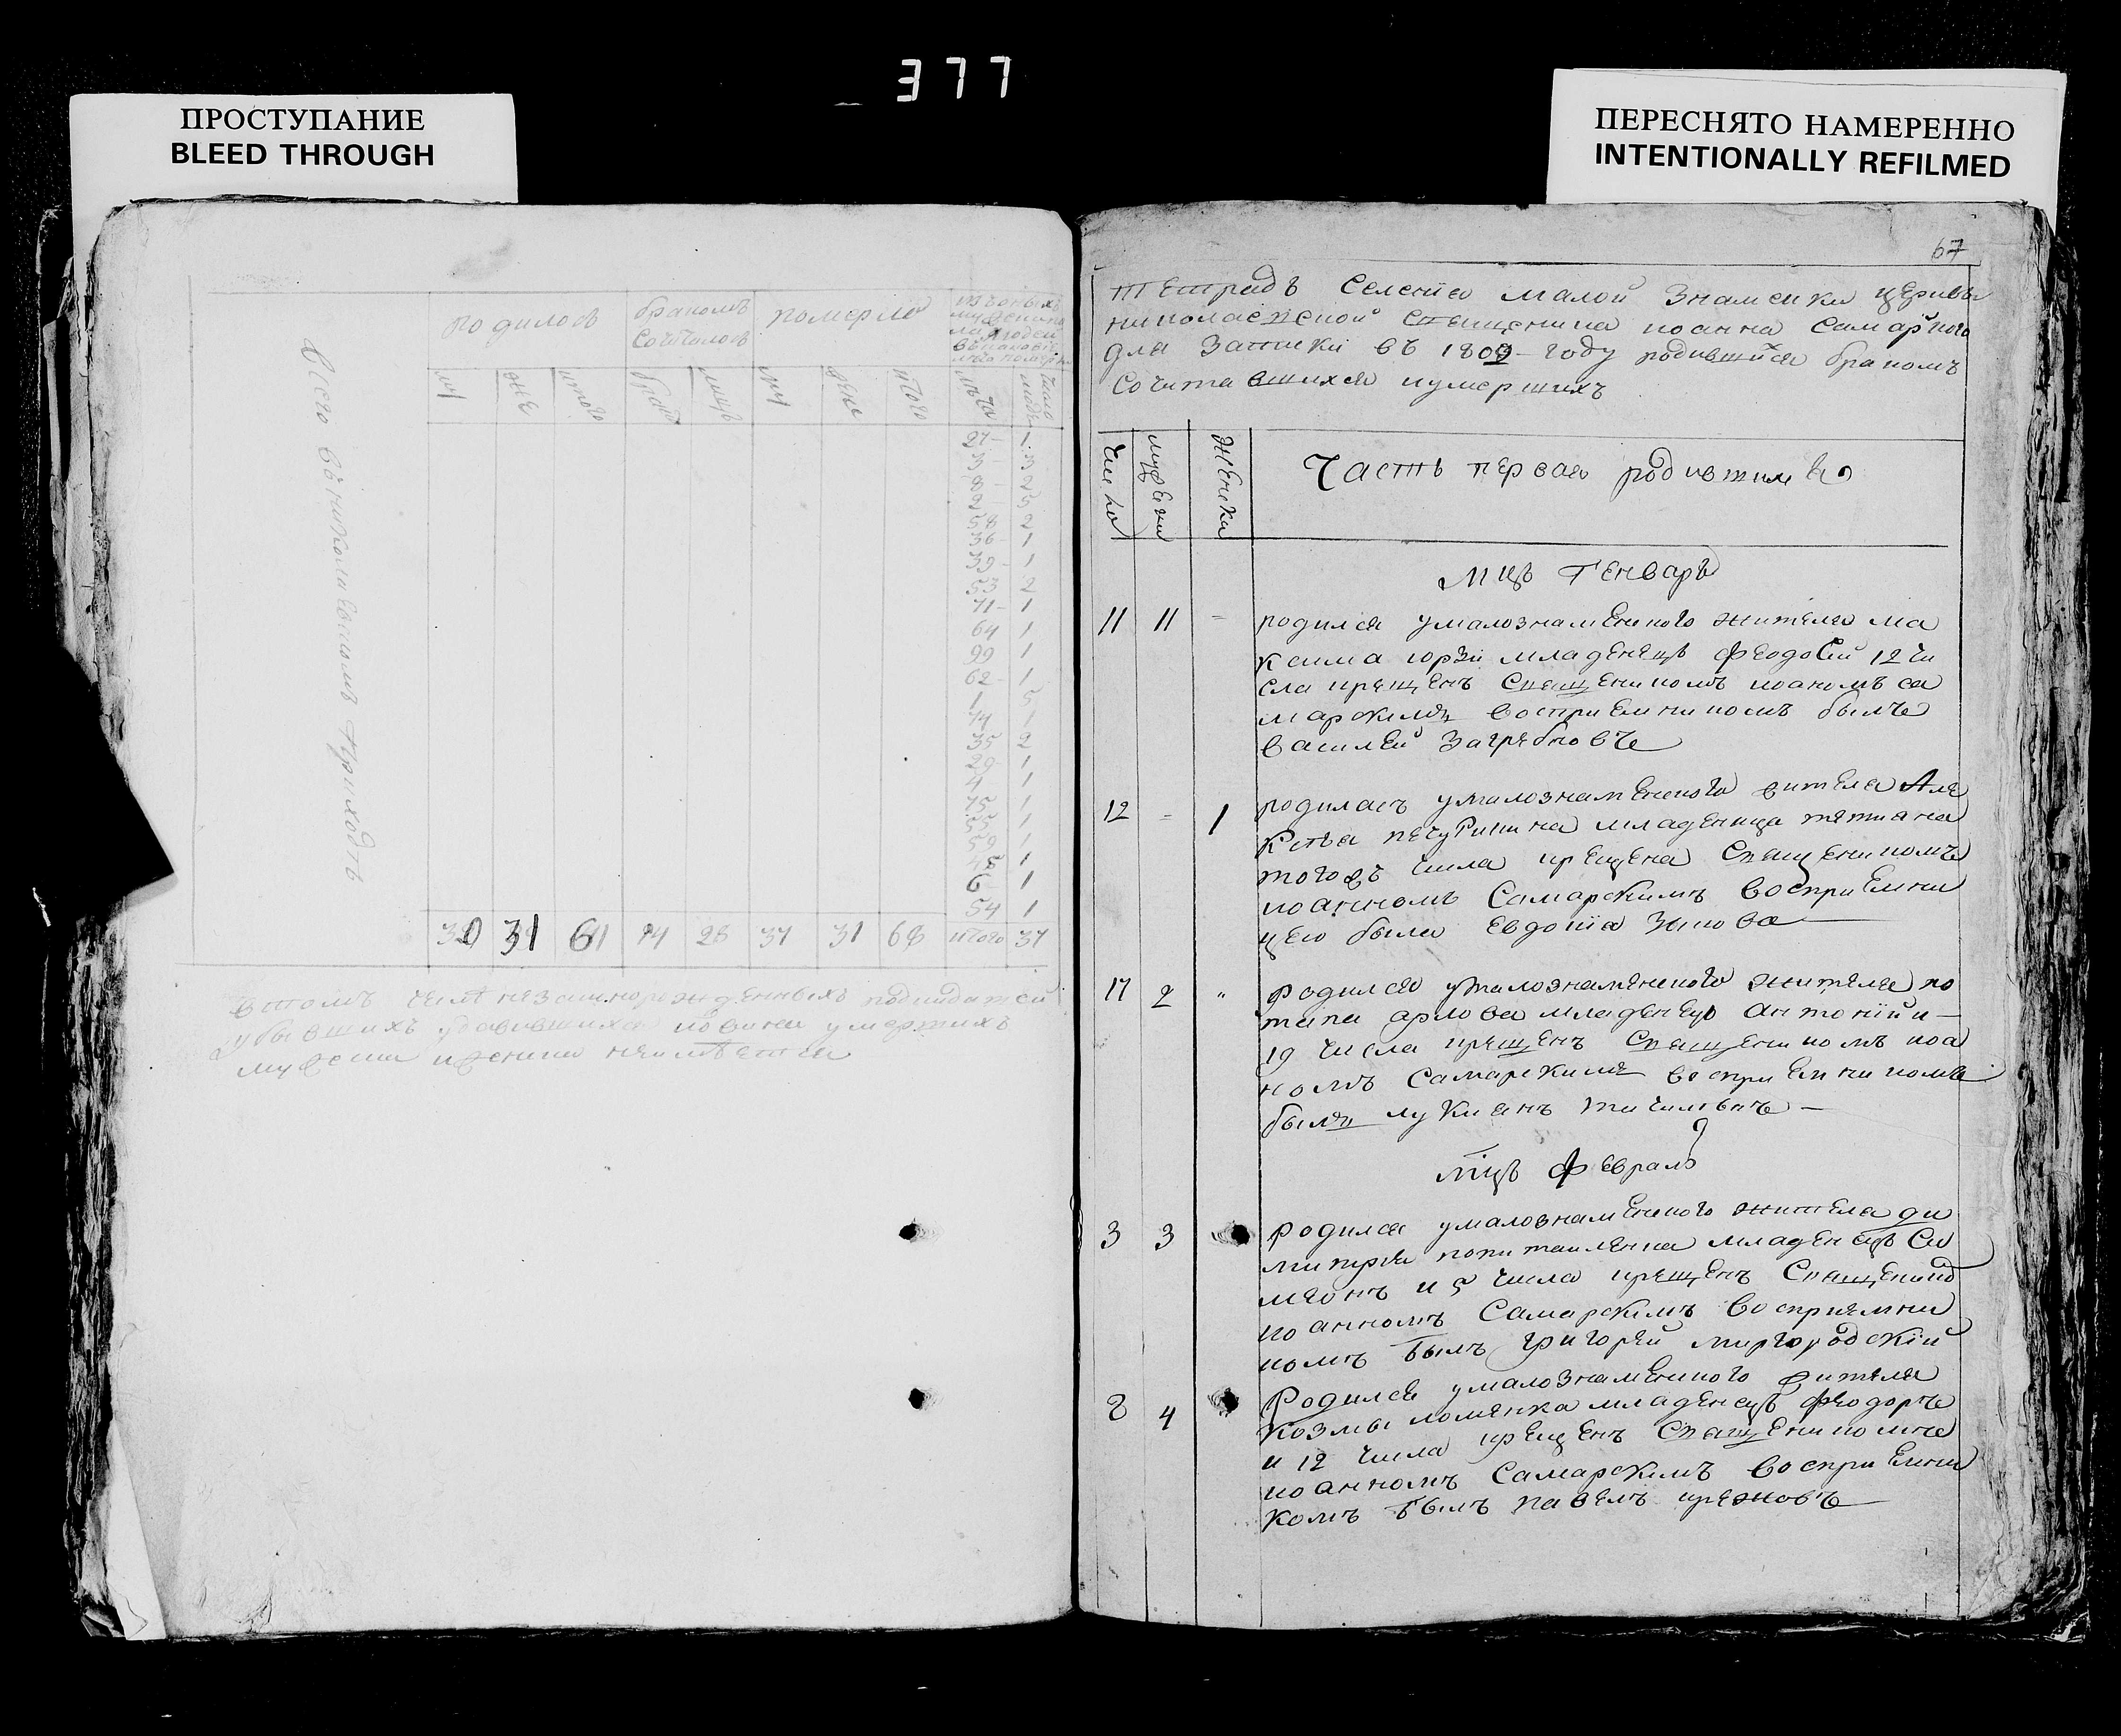 377
ПРОСТУПАНИЕ
BLEED THROUGH
ПЕРЕСНЯТО НАМЕРЕННО
INTENTIONALLY REFILMED
родилось
бракомъ
сочталось
померло
му
жЕ
итого
бракъ
лицъ
му
жЕнс
итого
лѣта
число
людей
Всего въ николаевскомъ приходѣ
27 1
3 3
8 2
2 5
58 2
36 1
39 1
53 2
71 1
64 1
99 1
62 1
1 5
74 1
35 2
29 1
4 1
75 1
55 1
59 1
48 1
6 1
54 1
30 31 61 14 28 37 31 68 итого 37
втомъ числѣ незаконорожденныхъ подкидышей
убившихъ удавившихся
мужеска иженска неимѣется
67
тЕтрадъ СелЕнїя малой Знаменки цЕркви
николаевской Священика иоанна Самарского
для Записки въ 1809 году родившихся бракомъ
Сочитавшихся иумершихъ
Число
мужЕски
ЖЕнски
Часть пЕрвая родившимся
Мцъ ГЕнваръ
11 11 =
родился умалознамЕнского жителя ма
ксима млад Енецъ ФЕодоСий 12 чи
сла крещЕнъ СвещЕникомъ иоаномъ са
марскимъ воспрїЕмникомъ былъ
василЕй Загребновъ
12 = 1
родиласъ умалознамЕнского жителя АлЕ
младеница татиана
тогожъ числа крЕщена СвещЕникомъ
иоанномъ Самарскимъ воспрїЕмни
цею была Евдокїа Зыкова
17 2 "
родился умалознамЕнского жителя по
тапа арлова младЕнЕцъ антонїй и
19 числа крещЕнъ СвещЕникомъ иоа
номъ Самарскимъ воспрїЕмникомъ
былъ лукианъ
мцъ ФЕвралъ
3 3
родился умалознамЕнского жителя ди
митрїя младЕнЕцъ Си
мЕонъ и 5 числа крещЕнъ СвещЕникомъ
иоанномъ Самарскимъ воспрїемни
комъ былъ григорЕй миргородскїй
8 4
Родился умалознамЕнского жителя
козмы младЕнЕцъ ФЕодоръ
и 12 числа крЕщЕнъ СвещЕникомъ
иоанномъ Самарскимъ воспрїЕмни
комъ былъ павЕлъ